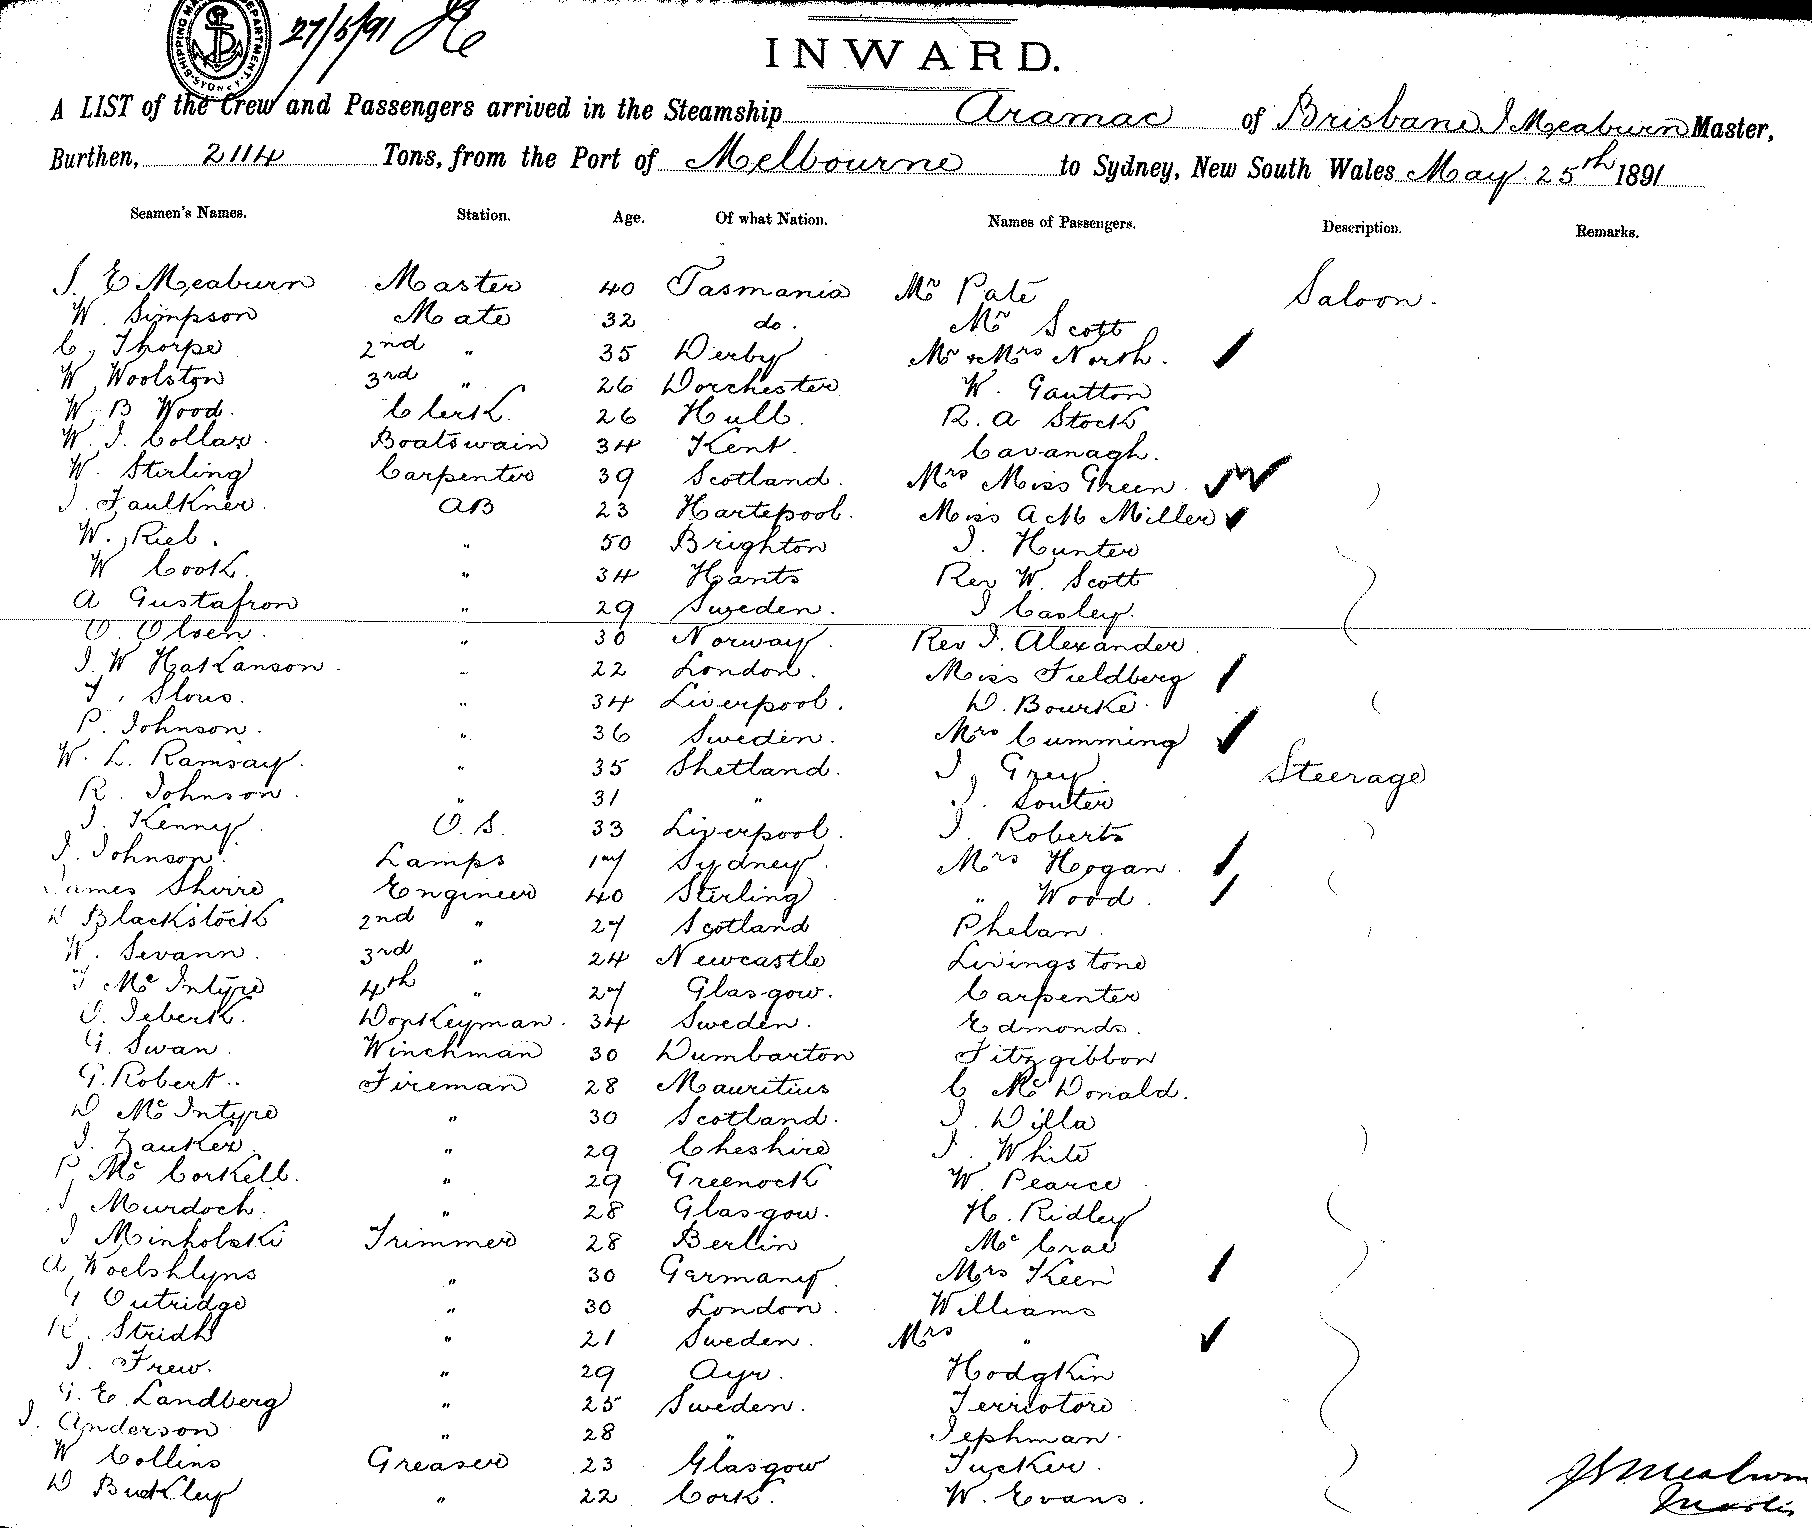 27/5/91
INWARD.
A LIST of the Crew and Passengers arrived in the Steamship Aramac of Brisbane J Meaburn Master,
Burthen, 2114 Tons, from the Port of Melbourne to Sydney, New South Wales May 25th 1891
Seamen's Names. Station. Age. Of what Nation. Names of Passengers. Description. Remarks.
J. E Meaburn Master 40 Tasmania Mr Pate Saloon.
W. Simpson Mate 32 do. Mr Scott
C, Thorpe 2nd " 35 Derby Mr & Mrs North.
W, Woolston 3rd " 26 Dorchester W. Gautton
W. B Wood. Clerk. 26 Hull. R. A Stock
W. J. Collar. Boatswain 34 Kent. Cavanagh.
W. Stirling Carpenter 39 Scotland. Mrs Miss Green.
J. Faulkner. AB 23 Hartepool. Miss A M Miller
W. Rieb. " 50 Brighton J. Hunter
W Cook. " 34 Hants Rev W. Scott
A Gustafron " 29 Sweden. J Casley.
O. Olsen. " 30 Norway. Rev J. Alexander.
J. W Hakanson. " 22 London. Miss Fieldberg
T. " 34 Liverpool. D. Bourke.
P. Johnson. " 36 Sweden. Mrs Cumming
W. L. Ramsay. " 35 Shetland. J, Grey Steerage
R. Johnson. " 31 " J. Souter
J. Kenny. O.S. 33 Liverpool. J. Roberts
J. Johnson. Lamps 17 Sydney. Mrs Hogan.
James Shirre Engineer 40 Stirling " Wood.
D Blackstock 2nd " 27 Scotland Phelan.
W. Sevann. 3rd " 24 Newcastle Livingstone
T McIntyre 4th " 27 Glasgow. Carpenter
O. Donkeyman. 34 Sweden. Edmonds.
G. Swan. Winchman 30 Dumbarton Fitzgibbon
G. Robert.. Fireman 28 Mauritius C McDonald.
D McIntyre " 30 Scotland. J. Dilla
J. " 29 Cheshire J. White
P, McCorkell. " 29 Greenock W. Pearce
J Murdoch. " 28 Glasgow. H. Ridley
J Minholski Trimmer 28 Berlin McCrae
A, Woelshlyns " 30 Germany. Mrs Keen
G Outridge " 30 London. Williams
K. Stridh " 21 Sweden. Mrs "
J. Frew. " 29 Ayr. Hodgkin
G. E Landberg " 25 Sweden. Terriotore
J. Anderson " 28 " Jephman.
W Collins Greaser 23 Glasgow Tucker.
D Buckley " 22 Cork. W. Evans.
J E Meaburn
Master